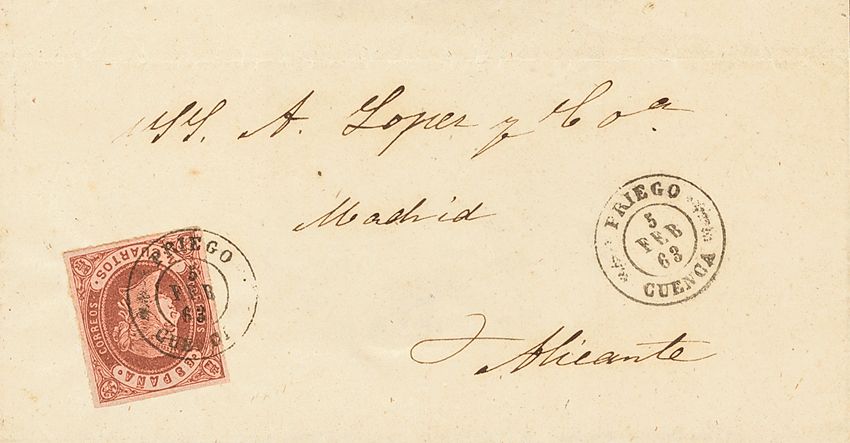 SS. A. Lopez y Coa.
Madrid
Alicante
PRIEGO
5
FEB
63
CUENCA
PRIEGO
5
FEB
63
CUARTOS
CORREOS
ESPAÑA